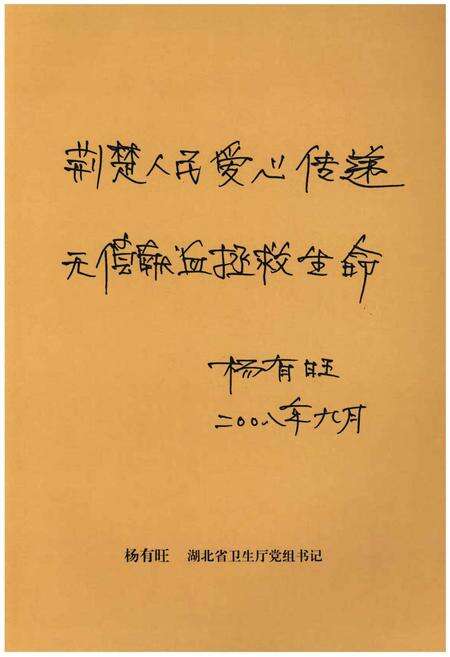 荆楚人民爱心传递
无偿献血拯救生命
杨有旺
二〇〇八年九月
杨有旺 湖北省卫生厅党组书记